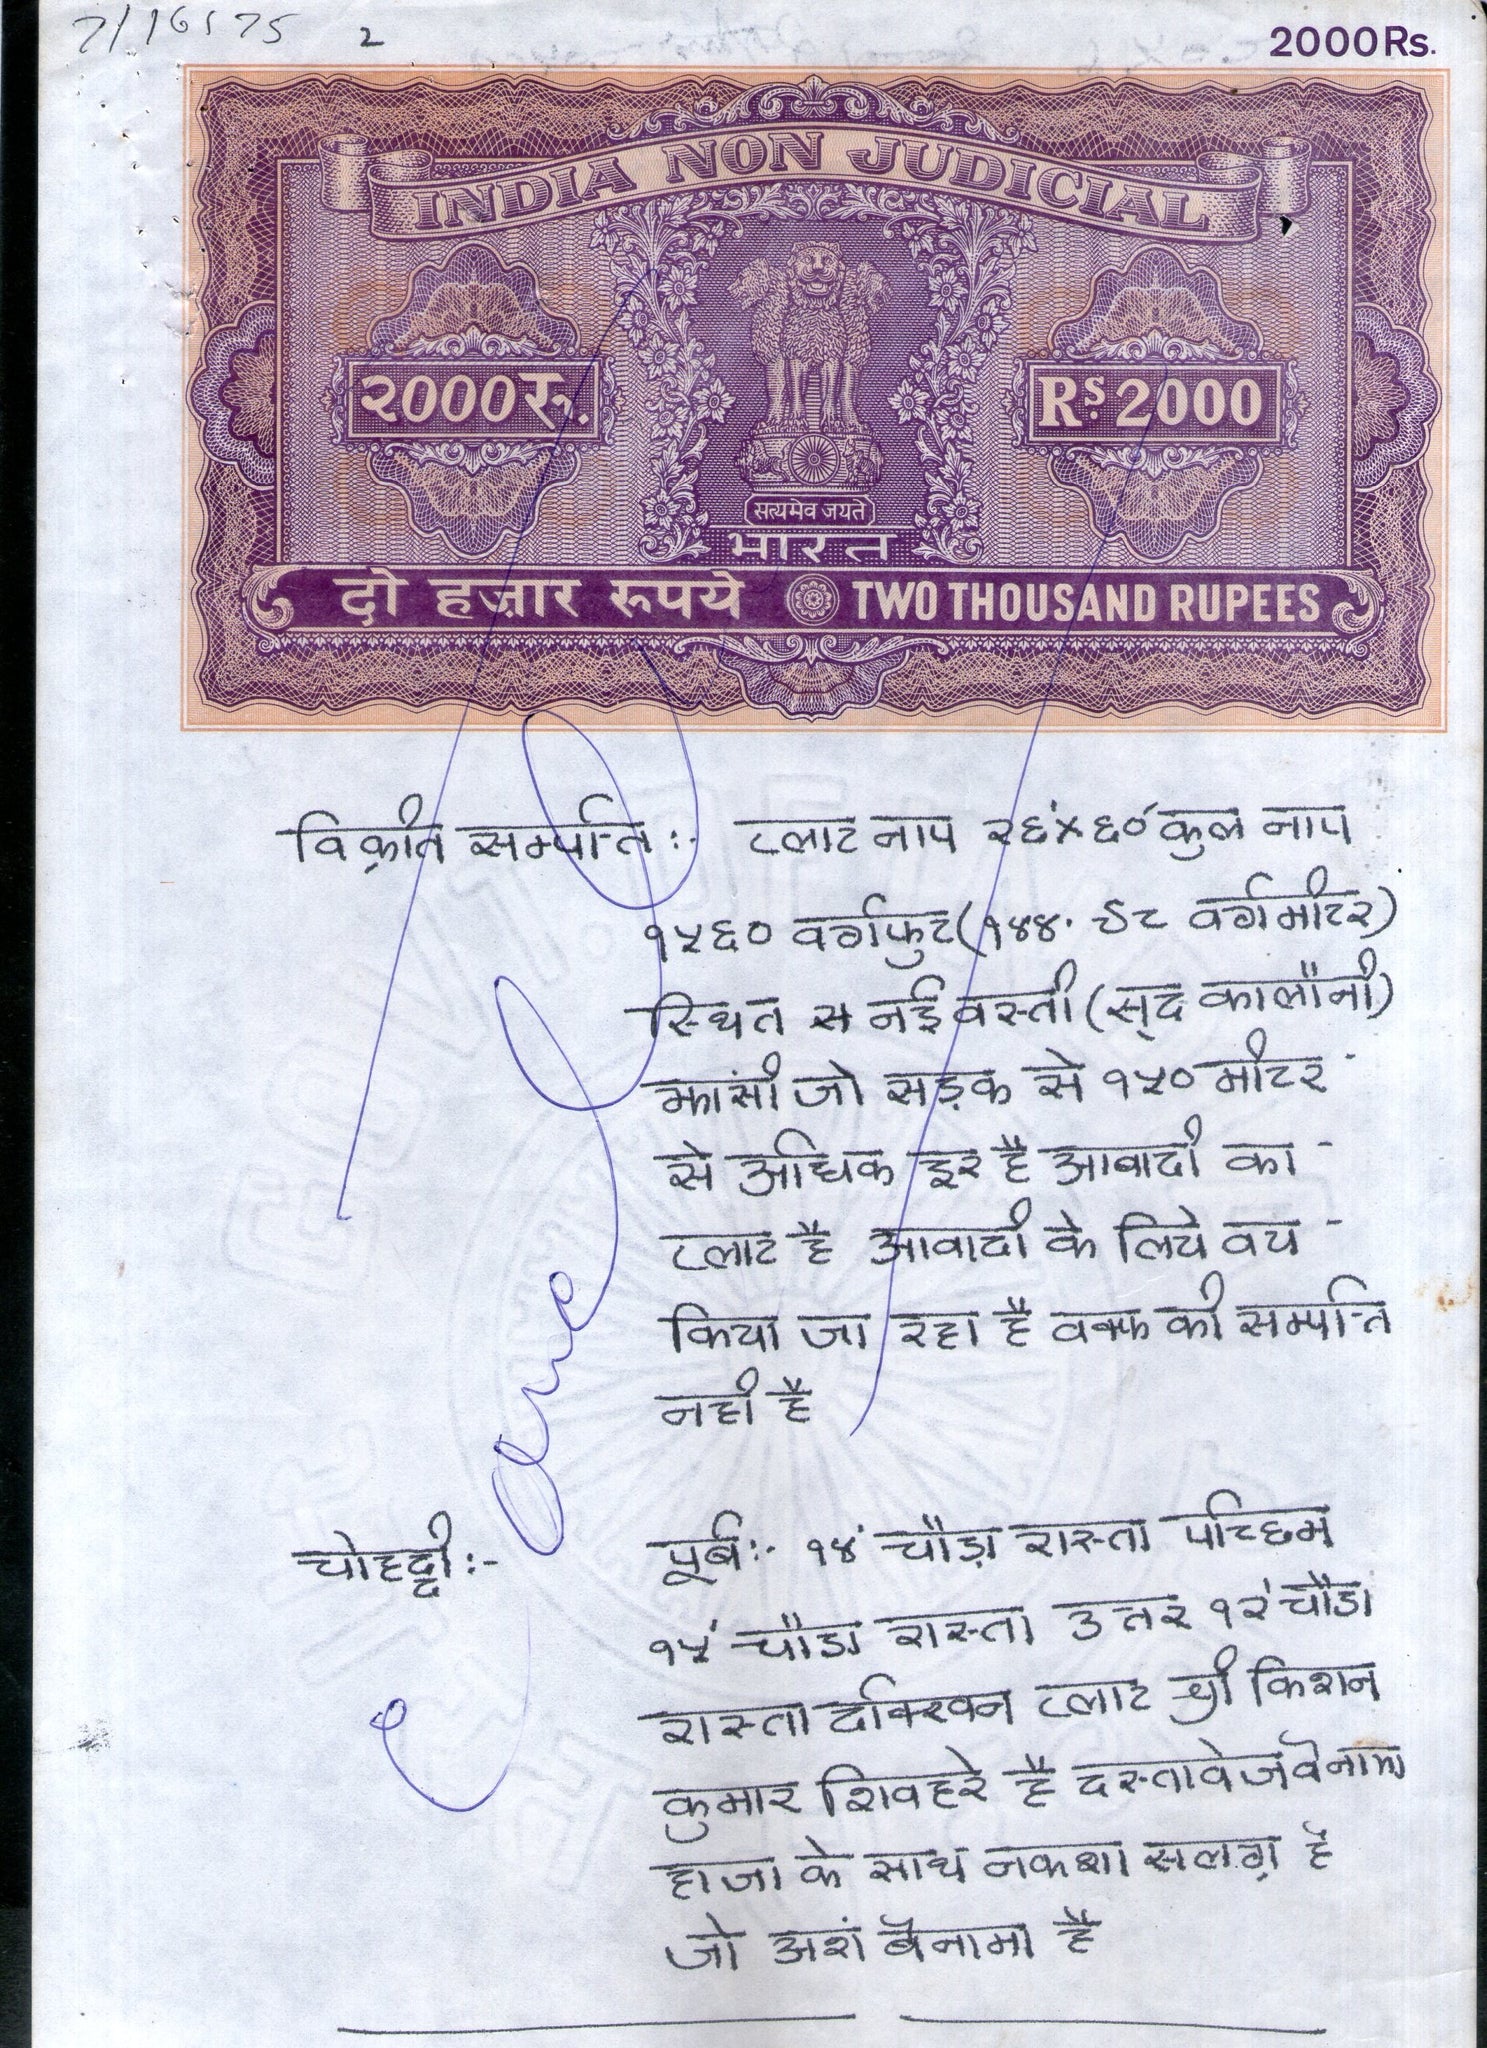 7/16575 2
2000Rs.
INDIA NON JUDICIAL
२000रु. Rs. 2000
सत्यमेव जयते
भारत
दो हज़ार रुपये TWO THOUSAND RUPEES
विक्रीत सम्पत्ति :- प्लाट नाप २६'×६०' कुल नाप
१५६० वर्गफुट (१४४.९८ वर्गमीटर)
स्थित नई वस्ती (सूद कालौनी)
झांसी जो सड़क से १५० मीटर
से अधिक दूर है आबादी का
प्लाट है आवादी के लिये क्रय
किया जा रहा है वक्फ की सम्पत्ति
नहीं है
चोहद्दी :- पूर्ब :- १४' चौड़ा रास्ता पच्छिम
१५' चौडा रास्ता उत्तर १२' चौडा
रास्ता दक्खिन प्लाट श्री किशन
कुमार शिवहरे है दस्तावेज वैनामा
हाजा के साथ नकशा सलग्न है
जो अशं बैनामा है